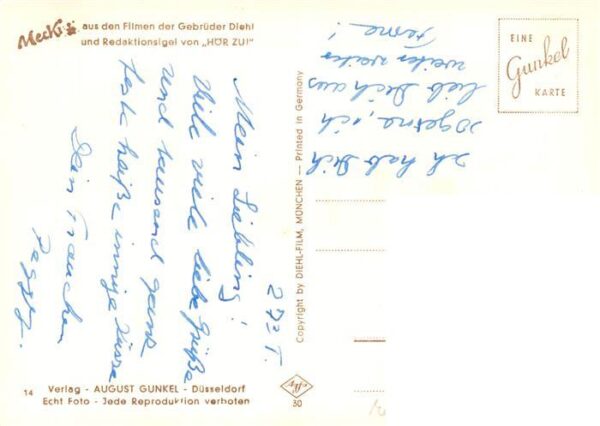 Mecki aus den Filmen der Gebrüder Diehl
und Redaktionsigel von „HÖR ZU!"
EINE
Gunkel
KARTE
Mein Liebling!
Viele viele liebe Grüße
und tausend ganz
feste heiße innige Küsse
Dein Frauchen
Peggy.
Ich hab Dich
so gerne, ich
lieb Dich aus
weiter weiter
Ferne!
Copyright by DIEHL-FILM, MÜNCHEN — Printed in Germany
14
Verlag - AUGUST GUNKEL - Düsseldorf
Echt Foto - Jede Reproduktion verboten
Agfa
30